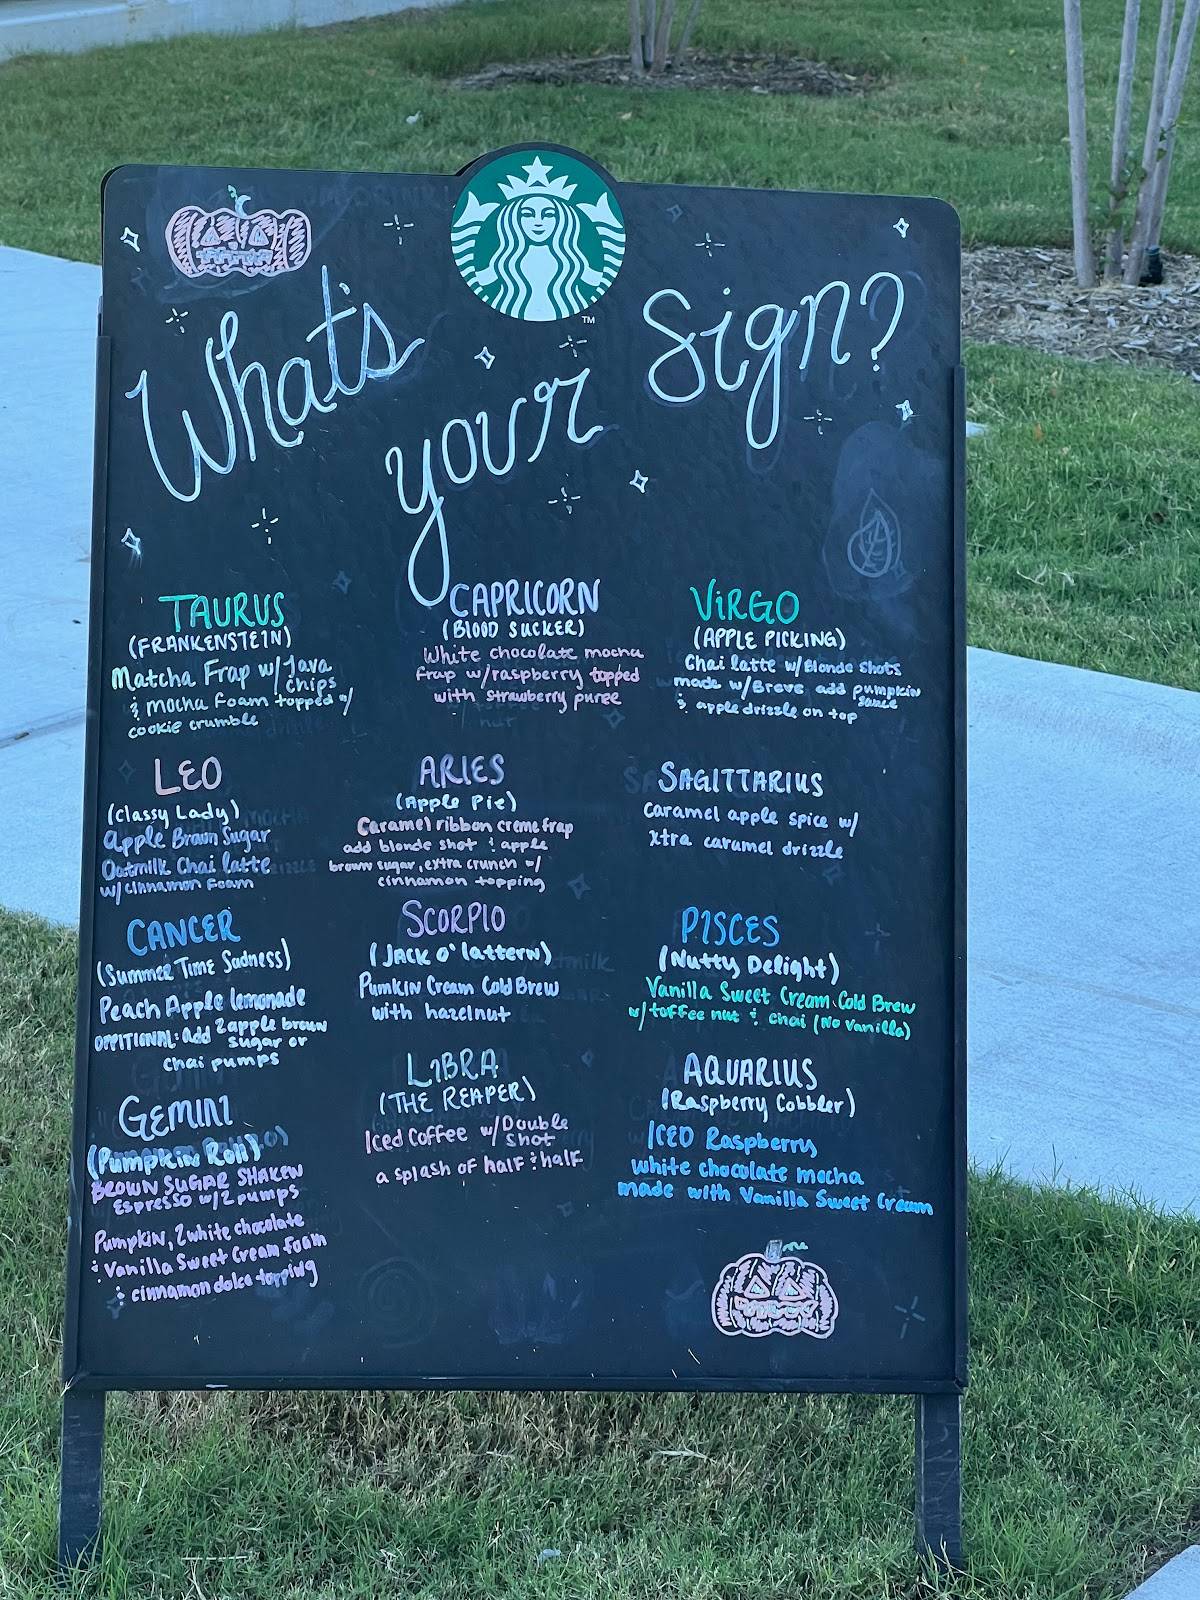 What's
your
Sign?
TM
TAURUS
(FRANKENSTEIN)
Matcha Frap w/ Java
chips
& mocha foam topped w/
cookie crumble
CAPRICORN
(BLOOD SUCKER)
White chocolate mocha
frap w/raspberry topped
with strawberry puree
VIRGO
(APPLE PICKING)
Chai latte w/Blonde Shots
made w/Breve, add pumpkin
sauce
& apple drizzle on top
LEO
(Classy Lady)
Apple Brown Sugar
Oatmilk Chai latte
w/ cinnamon foam
ARIES
(Apple Pie)
Caramel ribbon creme frap
add blonde shot & apple
brown sugar, extra crunch w/
cinnamon topping
SAGITTARIUS
Caramel apple spice w/
xtra caramel drizzle
CANCER
(Summer Time Sadness)
Peach Apple lemonade
OPPITIONAL: add 2 apple brown
sugar or
chai pumps
SCORPIO
(JACK O' lattern)
Pumkin Cream Cold Brew
with hazelnut
PISCES
(Nutty Delight)
Vanilla Sweet Cream Cold Brew
w/ toffee nut & chai (No Vanilla)
GEMINI
(Pumpkin Roll)
BROWN SUGAR SHAKEN
Espresso w/2 pumps
Pumpkin, 2 white chocolate
& Vanilla Sweet Cream foam
& cinnamon dolce topping
LIBRA
(THE REAPER)
Iced Coffee w/Double
shot
a splash of half & half
AQUARIUS
(Raspberry Cobbler)
ICED Raspberry
white chocolate mocha
made with Vanilla Sweet Cream